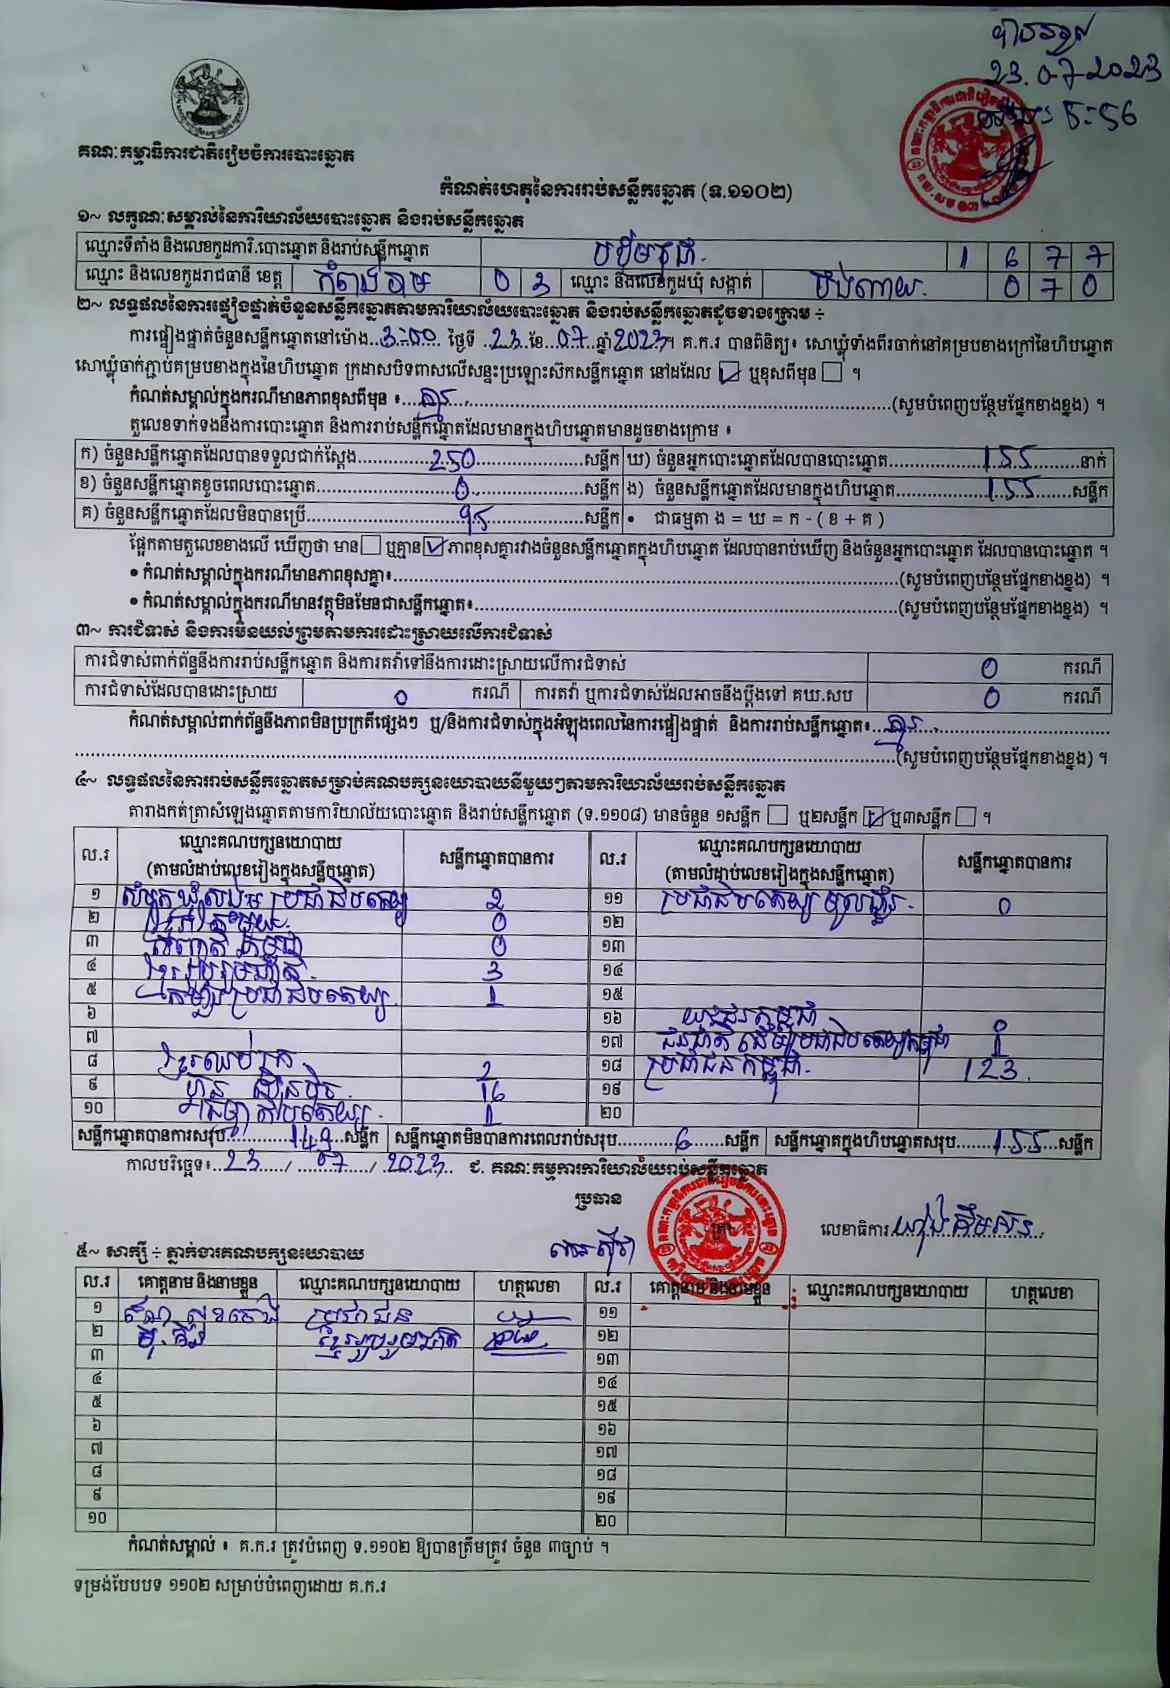 23.07.2023
5:56
គណៈកម្មាធិការជាតិរៀបចំការបោះឆ្នោត
កំណត់ហេតុនៃការរាប់សន្លឹកឆ្នោត (ទ.១១០២)
១~ លក្ខណៈសម្គាល់នៃការិយាល័យបោះឆ្នោត និងរាប់សន្លឹកឆ្នោត
ឈ្មោះទីតាំង និងលេខកូដការិ.បោះឆ្នោត និងរាប់សន្លឹកឆ្នោត 1 6 7 7
ឈ្មោះ និងលេខកូដរាជធានី ខេត្ត កំពង់ចាម 0 3 ឈ្មោះ និងលេខកូដឃុំ សង្កាត់ 0 7 0
២~ លទ្ធផលនៃការផ្ទៀងផ្ទាត់ចំនួនសន្លឹកឆ្នោតតាមការិយាល័យបោះឆ្នោត និងរាប់សន្លឹកឆ្នោតដូចខាងក្រោម ÷
ការផ្ទៀងផ្ទាត់ចំនួនសន្លឹកឆ្នោតនៅម៉ោង..3-00..ថ្ងៃទី..23..ខែ..07..ឆ្នាំ2023។ គ.ក.រ បានពិនិត្យ៖ សោឃ្លុំទាំងពីរចាក់នៅគម្របខាងក្រៅនៃហិបឆ្នោត
សោឃ្លុំចាក់ភ្ជាប់គម្របខាងក្នុងនៃហិបឆ្នោត ក្រដាសបិទពាសលើសន្ទះប្រឡោះស៊កសន្លឹកឆ្នោត នៅដដែល ☑ ឬខុសពីមុន ☐ ។
កំណត់សម្គាល់ក្នុងករណីមានភាពខុសពីមុន ៖...គ្មាន...(សូមបំពេញបន្ថែមផ្នែកខាងខ្នង) ។
តួលេខទាក់ទងនឹងការបោះឆ្នោត និងការរាប់សន្លឹកឆ្នោតដែលមានក្នុងហិបឆ្នោតមានដូចខាងក្រោម ៖
ក) ចំនួនសន្លឹកឆ្នោតដែលបានទទួលជាក់ស្តែង...250...សន្លឹក ឃ) ចំនួនអ្នកបោះឆ្នោតដែលបានបោះឆ្នោត...155...នាក់
ខ) ចំនួនសន្លឹកឆ្នោតខូចពេលបោះឆ្នោត...0...សន្លឹក ង) ចំនួនសន្លឹកឆ្នោតដែលមានក្នុងហិបឆ្នោត...155...សន្លឹក
គ) ចំនួនសន្លឹកឆ្នោតដែលមិនបានប្រើ...95...សន្លឹក • ជាធម្មតា ង = ឃ = ក - ( ខ + គ )
ផ្អែកតាមតួលេខខាងលើ ឃើញថា មាន ☐ ឬគ្មាន ☑ ភាពខុសគ្នារវាងចំនួនសន្លឹកឆ្នោតក្នុងហិបឆ្នោត ដែលបានរាប់ឃើញ និងចំនួនអ្នកបោះឆ្នោត ដែលបានបោះឆ្នោត ។
• កំណត់សម្គាល់ក្នុងករណីមានភាពខុសគ្នា៖...(សូមបំពេញបន្ថែមផ្នែកខាងខ្នង) ។
• កំណត់សម្គាល់ក្នុងករណីមានវត្ថុមិនមែនជាសន្លឹកឆ្នោត៖...(សូមបំពេញបន្ថែមផ្នែកខាងខ្នង) ។
៣~ ការជំទាស់ និងការមិនយល់ព្រមតាមការដោះស្រាយលើការជំទាស់
ការជំទាស់ពាក់ព័ន្ធនឹងការរាប់សន្លឹកឆ្នោត និងការតវ៉ាទៅនឹងការដោះស្រាយលើការជំទាស់ 0 ករណី
ការជំទាស់ដែលបានដោះស្រាយ 0 ករណី ការតវ៉ា ឬការជំទាស់ដែលអាចនឹងប្តឹងទៅ គឃ.សប 0 ករណី
កំណត់សម្គាល់ពាក់ព័ន្ធនឹងភាពមិនប្រក្រតីផ្សេងៗ ឬ/និងការជំទាស់ក្នុងអំឡុងពេលនៃការផ្ទៀងផ្ទាត់ និងការរាប់សន្លឹកឆ្នោត៖...គ្មាន...
...(សូមបំពេញបន្ថែមផ្នែកខាងខ្នង) ។
៤~ លទ្ធផលនៃការរាប់សន្លឹកឆ្នោតសម្រាប់គណបក្សនយោបាយនីមួយៗតាមការិយាល័យរាប់សន្លឹកឆ្នោត
តារាងកត់ត្រាសំឡេងឆ្នោតតាមការិយាល័យបោះឆ្នោត និងរាប់សន្លឹកឆ្នោត (ទ.១១០៨) មានចំនួន ១សន្លឹក ☐ ឬ២សន្លឹក ☑ ឬ៣សន្លឹក ☐ ។
ល.រ ឈ្មោះគណបក្សនយោបាយ (តាមលំដាប់លេខរៀងក្នុងសន្លឹកឆ្នោត) សន្លឹកឆ្នោតបានការ ល.រ ឈ្មោះគណបក្សនយោបាយ (តាមលំដាប់លេខរៀងក្នុងសន្លឹកឆ្នោត) សន្លឹកឆ្នោតបានការ
១ សំបុកឃ្មុំសង្គមប្រជាធិបតេយ្យ 2 ១១ ប្រជាធិបតេយ្យមូលដ្ឋាន 0
២ 0 ១២
៣ 0 ១៣
៤ ខ្មែររួបរួមជាតិ 3 ១៤
៥ កម្លាំងប្រជាធិបតេយ្យ 1 ១៥
៦ ១៦ យុវជនកម្ពុជា
៧ ១៧ ជនជាតិដើមប្រជាធិបតេយ្យកម្ពុជា
៨ ខ្មែរឈប់ក្រ 2 ១៨ ប្រជាជនកម្ពុជា 123
៩ ហ៊្វុនស៊ិនប៉ិច 16 ១៩
១០ ធម្មាធិបតេយ្យ 1 ២០
សន្លឹកឆ្នោតបានការសរុប...149...សន្លឹក សន្លឹកឆ្នោតមិនបានការពេលរាប់សរុប...6...សន្លឹក សន្លឹកឆ្នោតក្នុងហិបឆ្នោតសរុប...155...សន្លឹក
កាលបរិច្ឆេទ៖..23../..07../..2023.. ជ. គណៈកម្មការការិយាល័យរាប់សន្លឹកឆ្នោត
ប្រធាន
លេខាធិការ
៥~ សាក្សី ÷ ភ្នាក់ងារគណបក្សនយោបាយ
ល.រ គោត្តនាម និងនាមខ្លួន ឈ្មោះគណបក្សនយោបាយ ហត្ថលេខា ល.រ គោត្តនាម និងនាមខ្លួន ឈ្មោះគណបក្សនយោបាយ ហត្ថលេខា
១ ប្រជាជន ១១
២ ខ្មែររួបរួមជាតិ ១២
៣ ១៣
៤ ១៤
៥ ១៥
៦ ១៦
៧ ១៧
៨ ១៨
៩ ១៩
១០ ២០
កំណត់សម្គាល់ ៖ គ.ក.រ ត្រូវបំពេញ ទ.១១០២ ឱ្យបានត្រឹមត្រូវ ចំនួន ៣ច្បាប់ ។
ទម្រង់បែបបទ ១១០២ សម្រាប់បំពេញដោយ គ.ក.រ